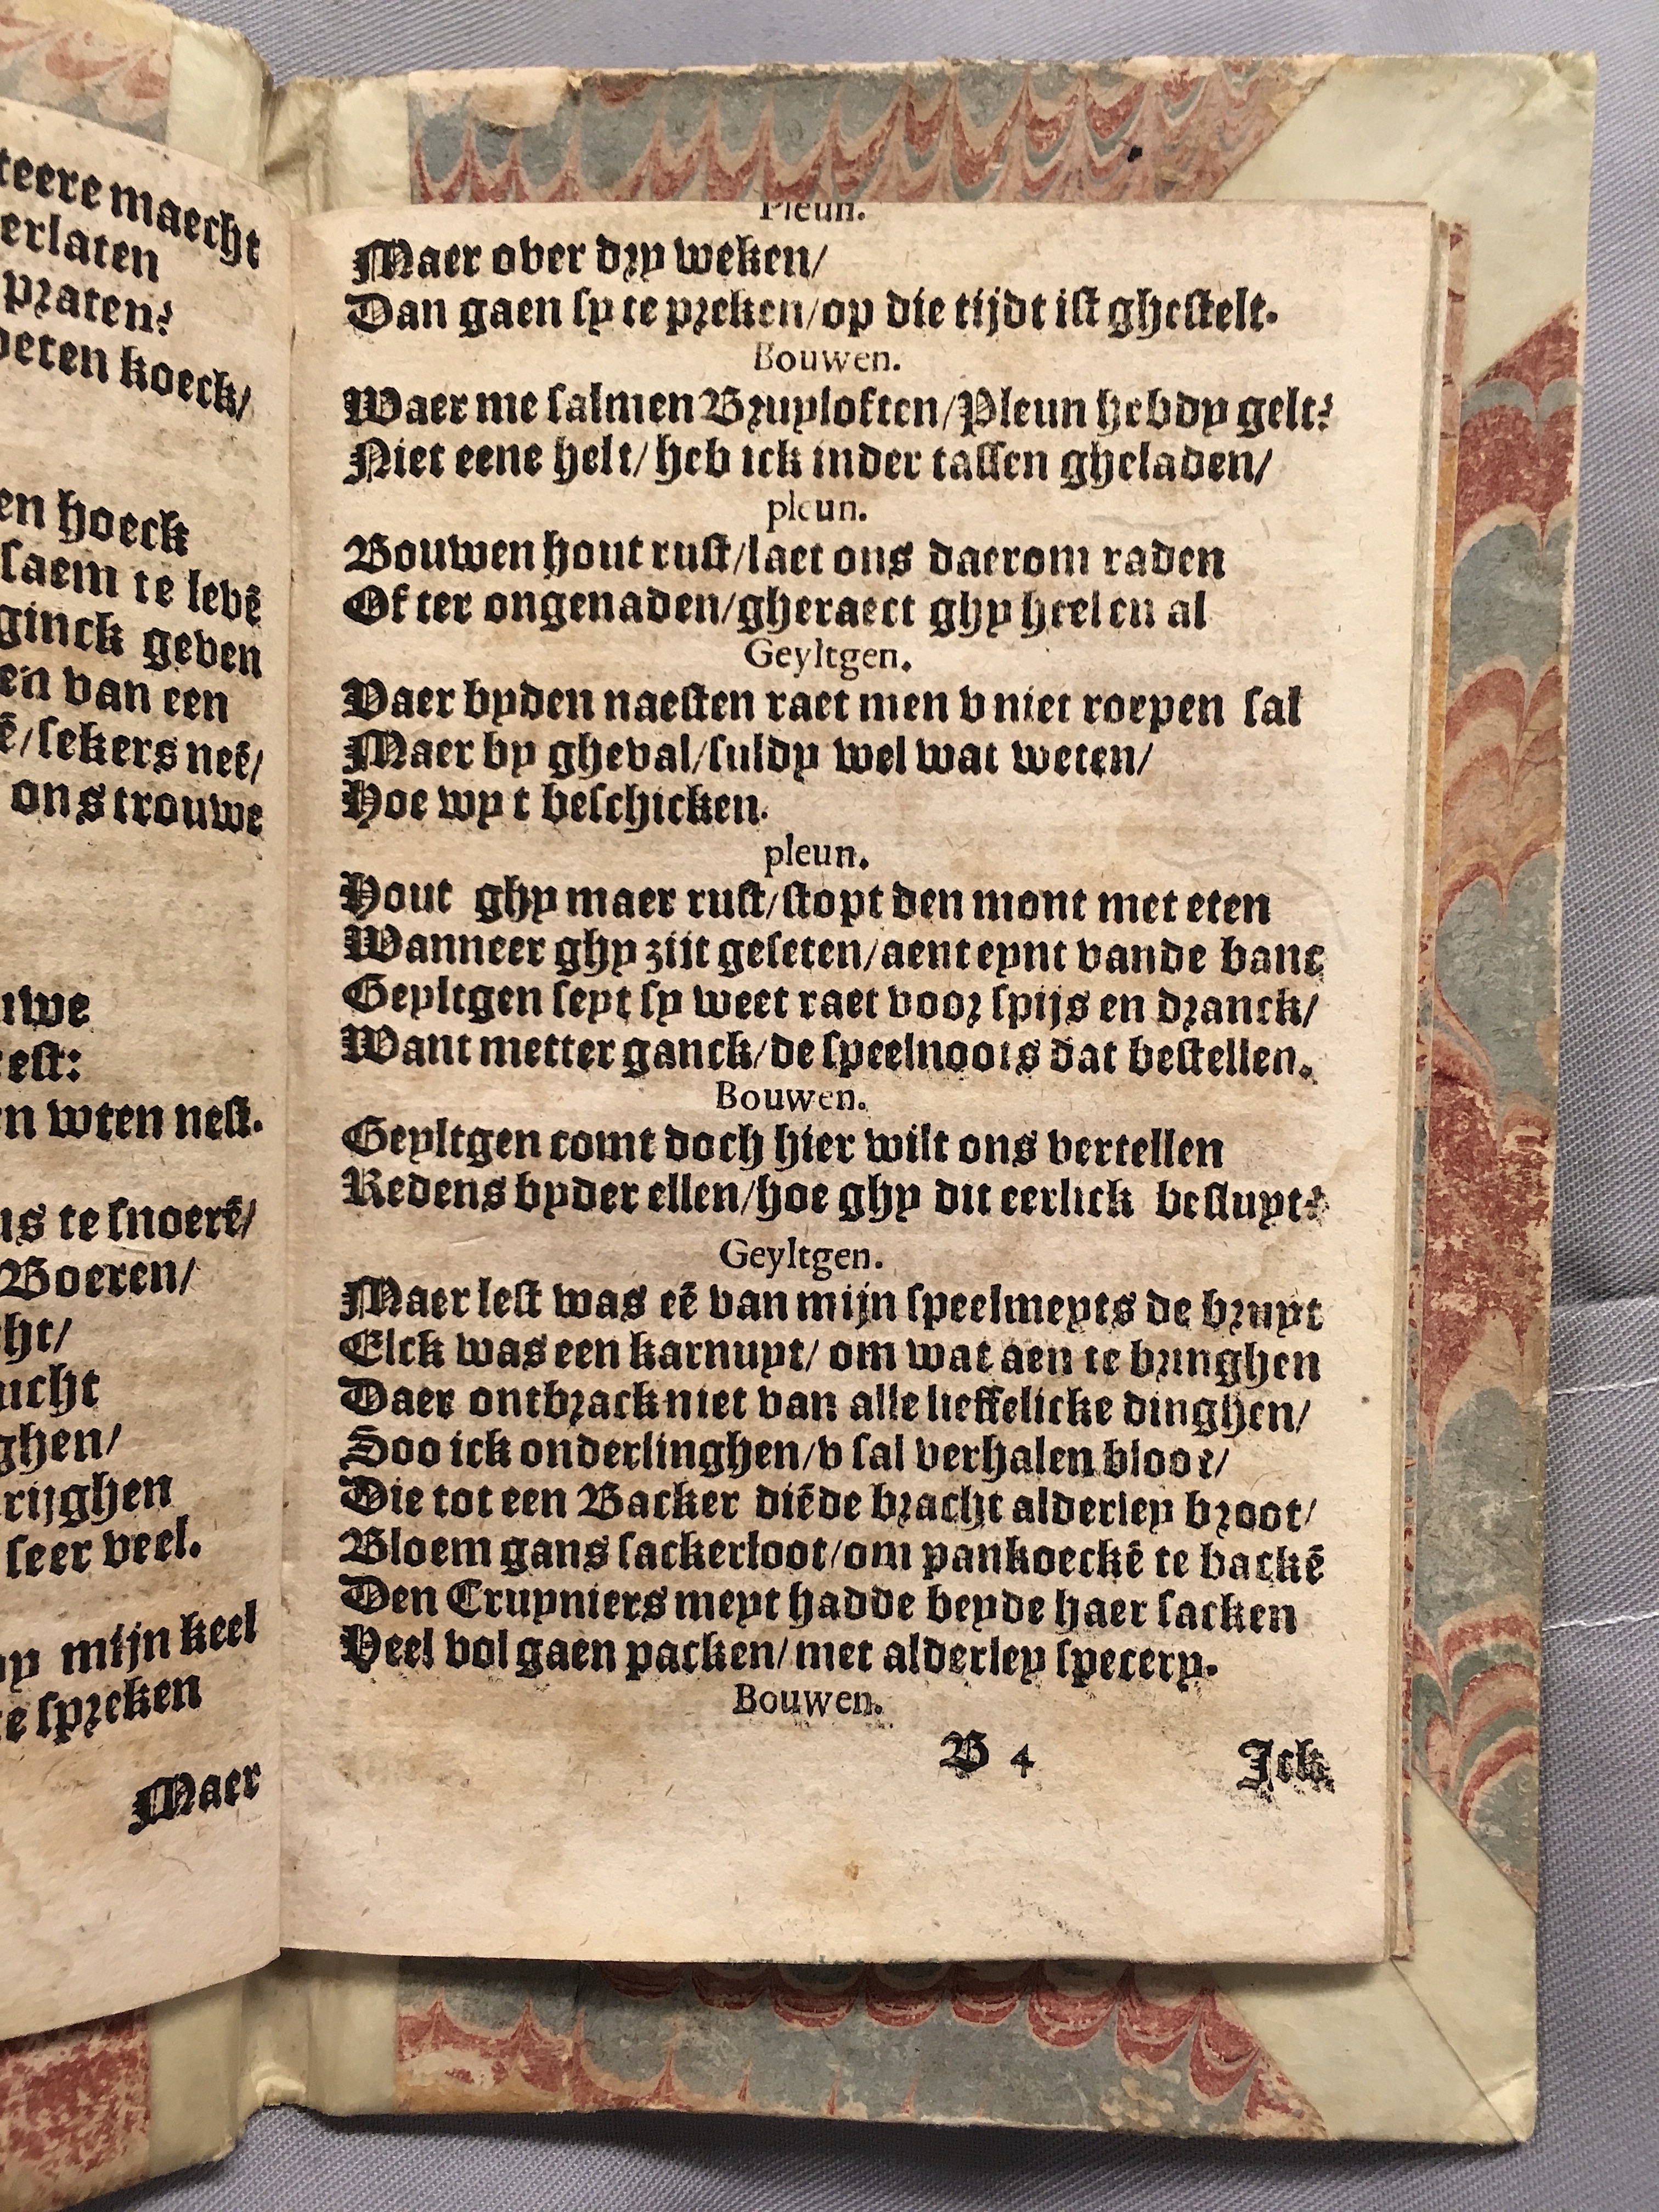 teere maecht
erlaten
praten?
oeten koeck/
en hoeck
saem te levē
ginck geven
en van een
ē/sekers neē/
ons trouwe
uwe
rest:
n wten nest.
us te snoerē/
Boeren/
cht/
ucht
ghen/
rijghen
seer veel.
my mijn keel
te spreken
Maer
Pleun.
Maer over dry weken/
Dan gaen sy te preken/op die tijdt ist ghestelt.
Bouwen.
Waer me salmen Bruyloften/Pleun hebdy gelt?
Niet eene helt/ heb ick inder tassen gheladen/
pleun.
Bouwen hout rust/laet ons daerom raden
Of ter ongenaden/gheraect ghy heel en al
Geyltgen.
Vaer byden naesten raet men v niet roepen sal
Maer by gheval/suldy wel wat weten/
Hoe wy t beschicken.
pleun.
Hout ghy maer rust/stopt den mont met eten
Wanneer ghy zijt geseten/aent eynt vande banc
Geyltgen seyt sy weet raet voor spijs en dranck/
Want metter ganck/de speelnoots dat bestellen.
Bouwen.
Geyltgen comt doch hier wilt ons vertellen
Redens byder ellen/hoe ghy dit eerlick besluyt?
Geyltgen.
Maer lest was eē van mijn speelmeyts de bruyt
Elck was een karnuyt/ om wat aen te bringhen
Daer ontbrack niet van alle lieffelicke dinghen/
Soo ick onderlinghen/v sal verhalen bloot/
Die tot een Backer diēde bracht alderley broot/
Bloem gans sackerloot/om pankoeckē te backē
Den Cruyniers meyt hadde beyde haer sacken
Veel vol gaen packen/met alderley specery.
Bouwen.
B 4
Ick